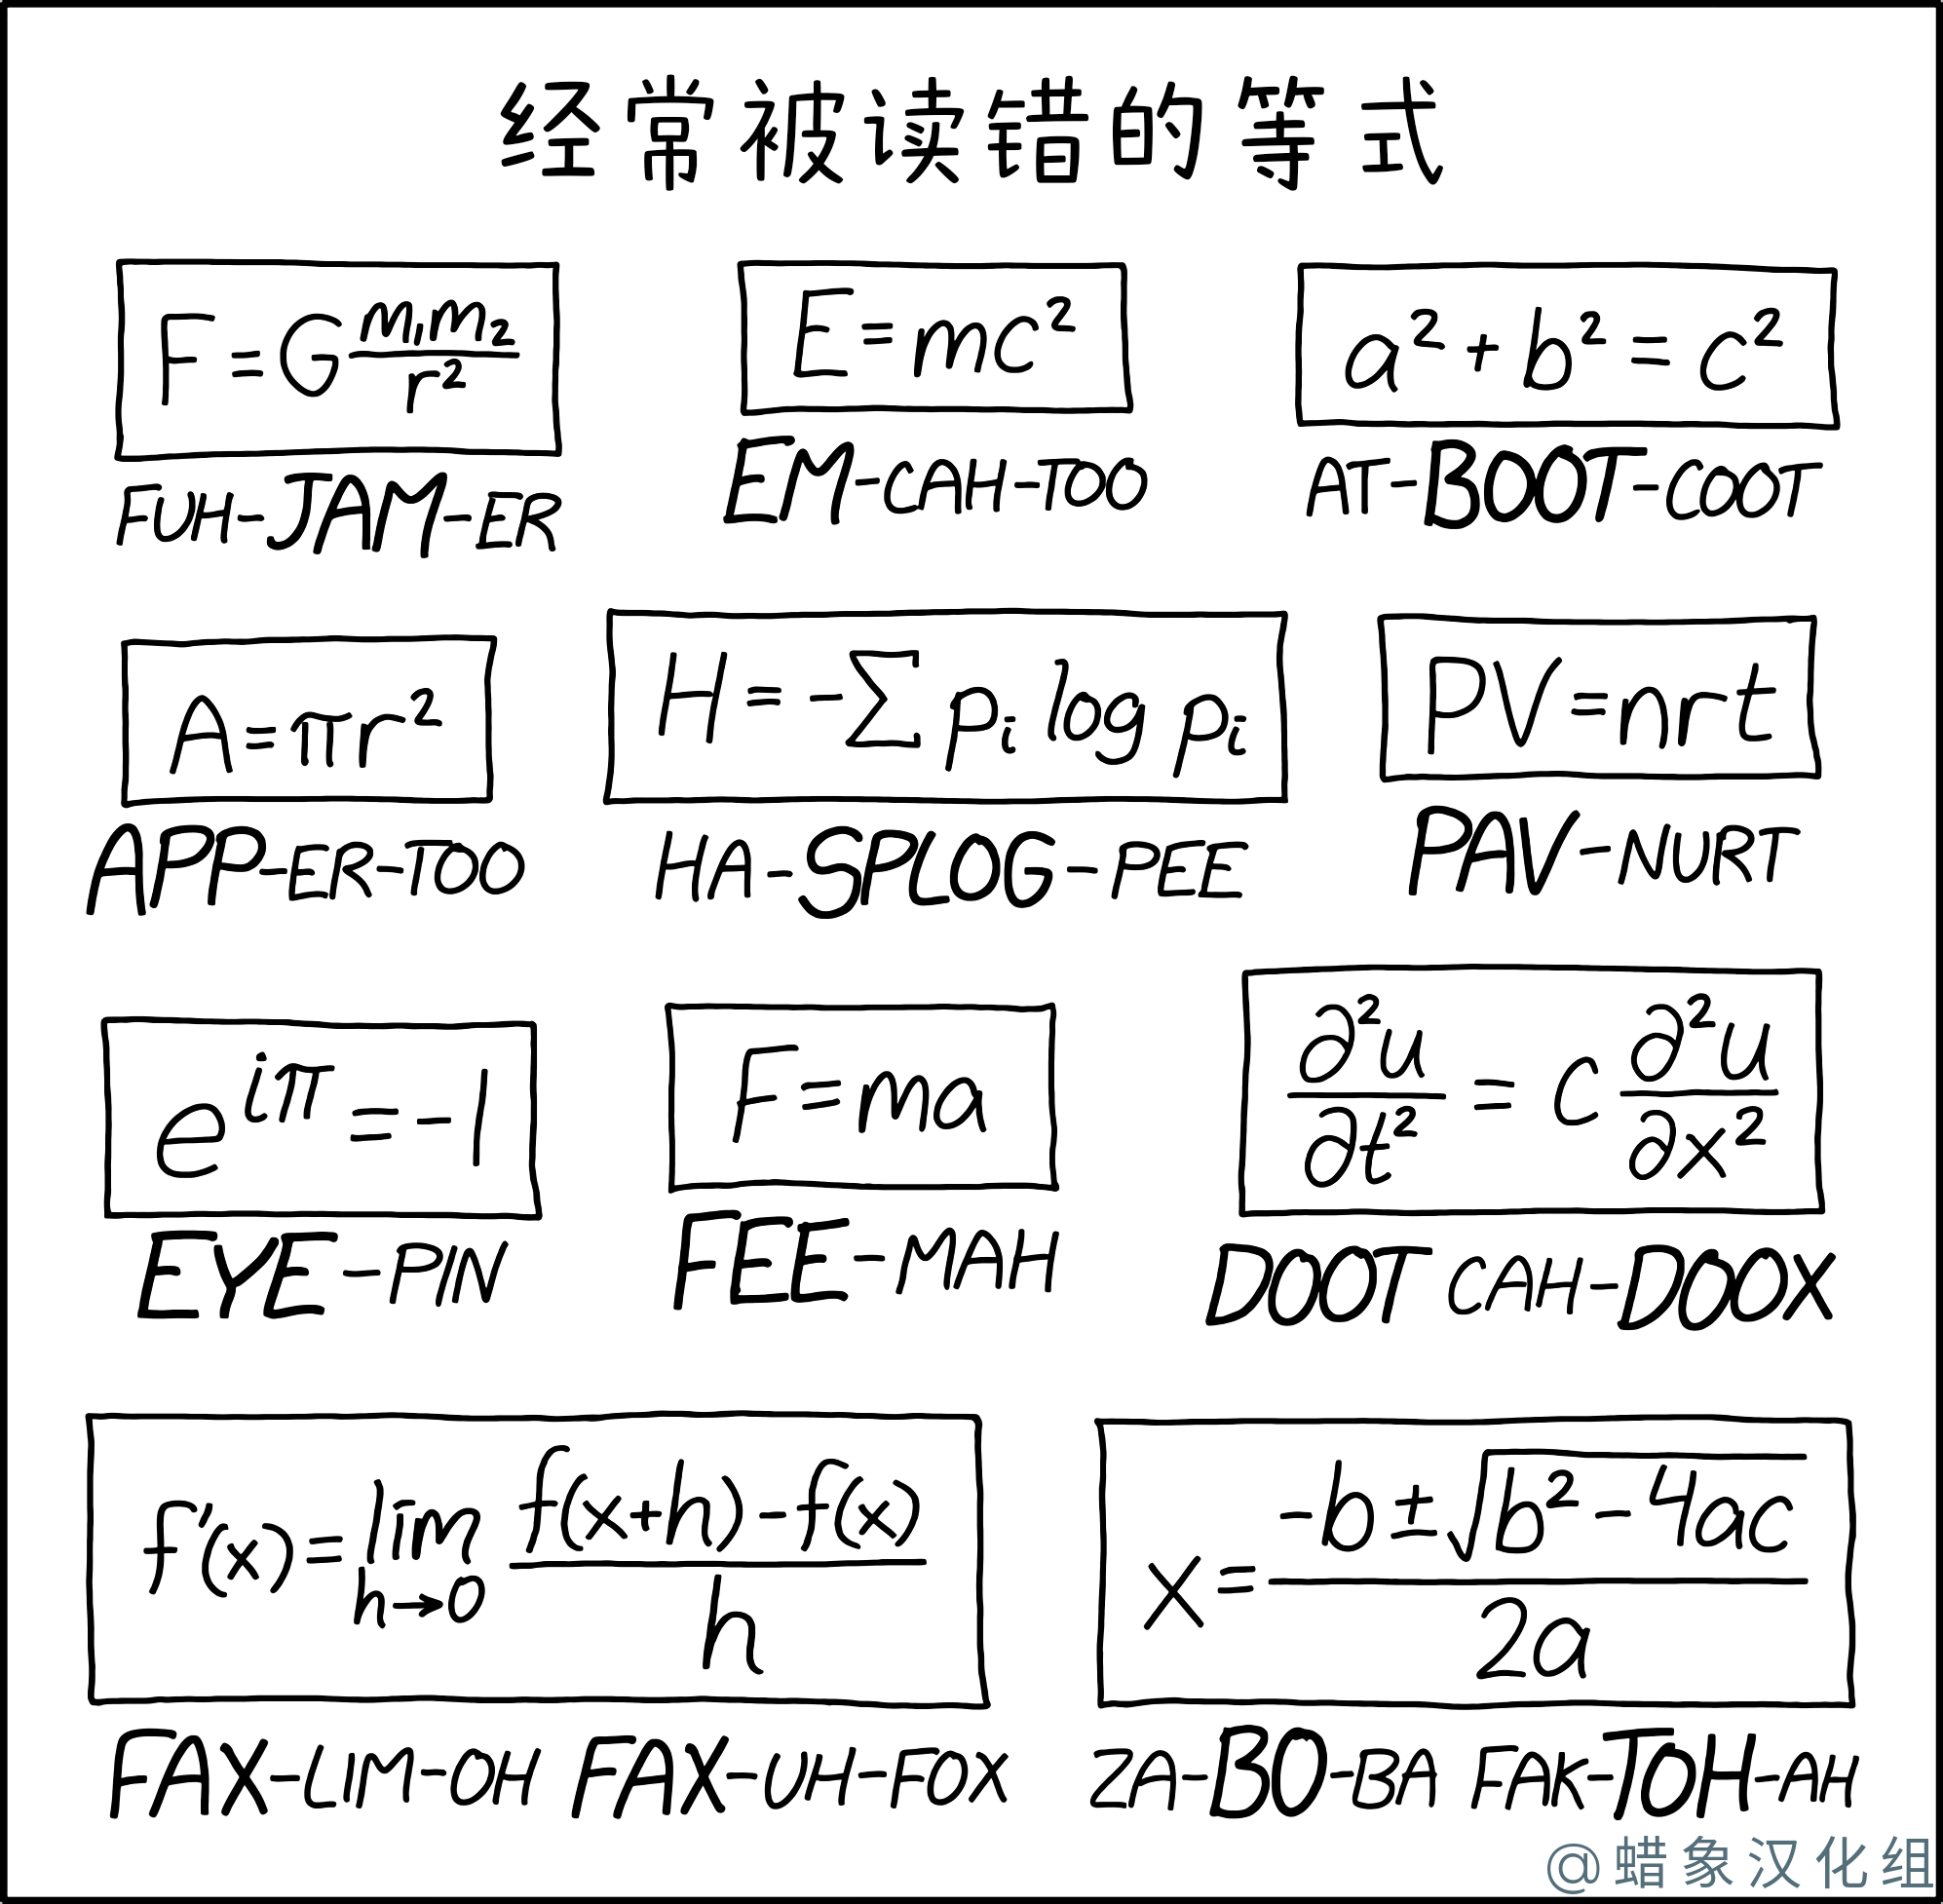 经常被读错的等式
F = G m₁m₂ / r²
FUH-JAM-ER
E = mc²
EM-CAH-TOO
a² + b² = c²
AT-BOOT-COOT
A = πr²
APP-ER-TOO
H = -∑ pᵢ log pᵢ
HA-SPLOG-PEE
PV = nrt
PAV-NURT
e^{iπ} = -1
EYE-PIN
F = ma
FEE-MAH
∂²u / ∂t² = c ∂²u / ∂x²
DOOT CAH-DOOX
f'(x) = lim h→0 f(x+h) - f(x) / h
FAX-LIM-OH FAX-UH-FOX
x = -b ± √b² - 4ac / 2a
ZA-BO-BA FAK-TOH-AH
@蜡象汉化组